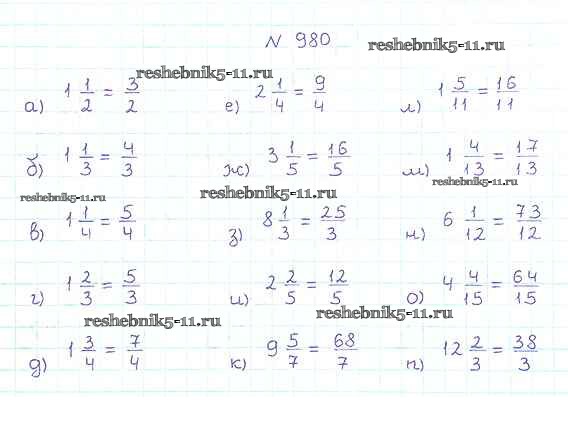 N 980
reshebnik5-11.ru
reshebnik5-11.ru
а) 1 1/2 = 3/2
е) 2 1/4 = 9/4
л) 1 5/11 = 16/11
б) 1 1/3 = 4/3
ж) 3 1/5 = 16/5
м) 1 4/13 = 17/13
reshebnik5-11.ru
reshebnik5-11.ru
reshebnik5-11.ru
в) 1 1/4 = 5/4
з) 8 1/3 = 25/3
н) 6 1/12 = 73/12
г) 1 2/3 = 5/3
и) 2 2/5 = 12/5
о) 4 4/15 = 64/15
reshebnik5-11.ru
reshebnik5-11.ru
д) 1 3/4 = 7/4
к) 9 5/7 = 68/7
п) 12 2/3 = 38/3